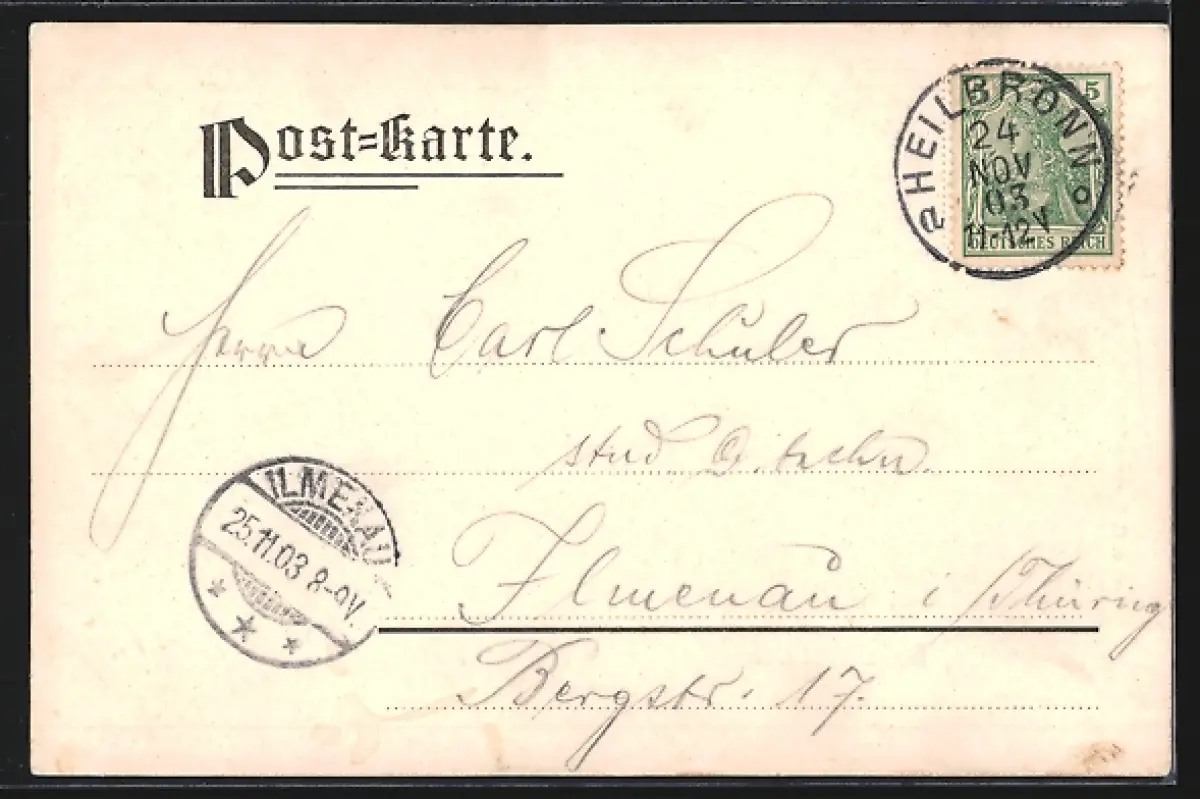 Post=Karte.
5
HEILBRONN
24
NOV
03
11-12V
DEUTSCHES REICH
Herrn Carl Schüler
stud. techn.
ILMENAU
25.11.03 8-9V.
Ilmenau i/Thüring
Bergstr. 17.